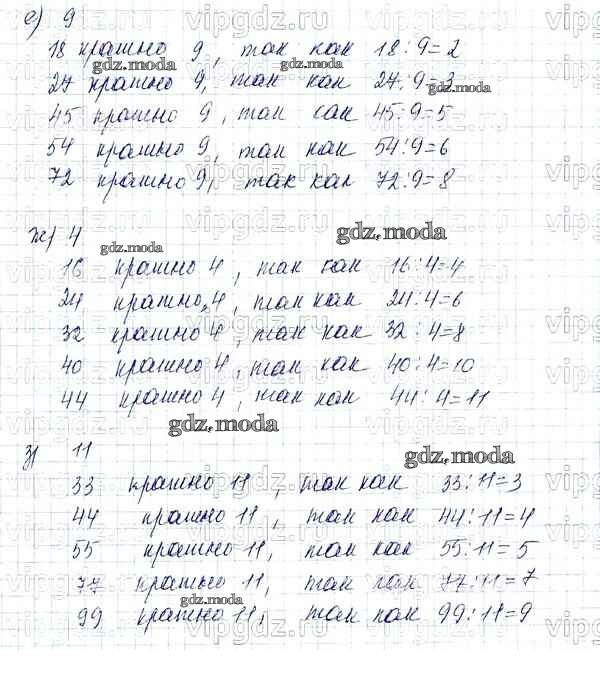 е) 9
18 кратно 9, так как 18:9=2
27 кратно 9, так как 27:9=3
45 кратно 9, так как 45:9=5
54 кратно 9, так как 54:9=6
72 кратно 9, так как 72:9=8
ж) 4
16 кратно 4, так как 16:4=4
24 кратно 4, так как 24:4=6
32 кратно 4, так как 32:4=8
40 кратно 4, так как 40:4=10
44 кратно 4, так как 44:4=11
з) 11
33 кратно 11, так как 33:11=3
44 кратно 11, так как 44:11=4
55 кратно 11, так как 55:11=5
77 кратно 11, так как 77:11=7
99 кратно 11, так как 99:11=9
gdz.moda
vipgdz.ru